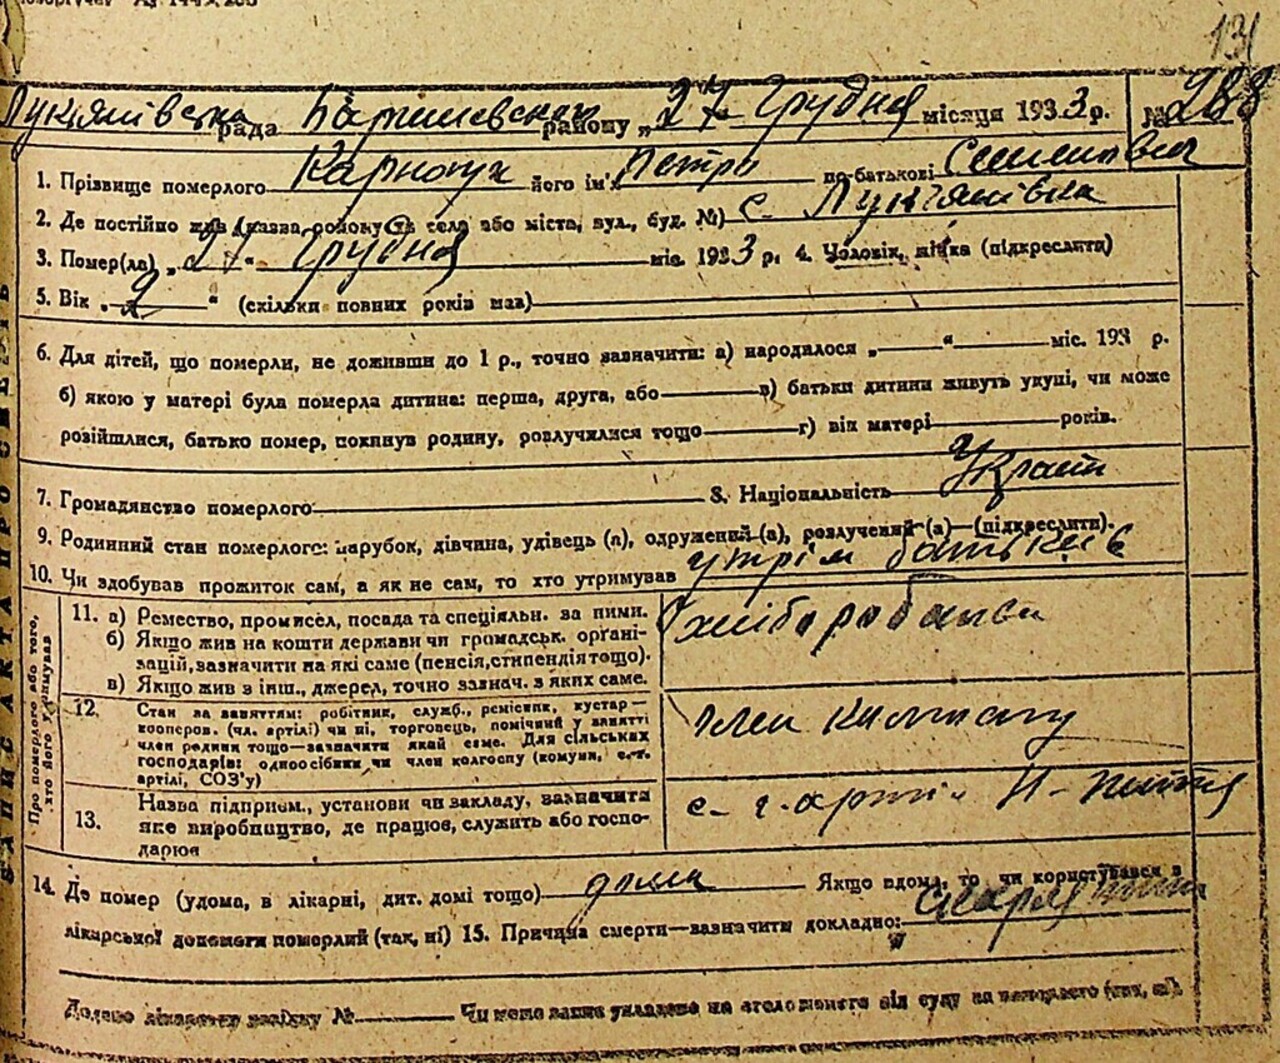 131
Лукянівська рада Баришевского району „27 Грудня місяця 1933 р. № 288
1. Прізвище померлого Карнаух його ім'я Петро по-батькові Семенович
2. Де постійно жив (назва району та села або міста, вул., буд. №) с. Лук'янівка
3. Помер(ла) „27“ Грудня міс. 1933 р. 4. Чоловік, жінка (підкреслити)
5. Вік „2“ (скільки повних років мав)
6. Для дітей, що померли, не доживши до 1 р., точно зазначити: а) народилося „ “ міс. 193 р.
б) якою у матері була померла дитина: перша, друга, або в) батьки дитини живуть укупі, чи може
розійшлися, батько помер, покинув родину, розлучилися тощо г) вік матері років.
7. Громадянство померлого 8. Національність Україн
9. Родинний стан померлого: парубок, дівчина, удівець (а), одружений (а), розлучений (а)—(підкреслити).
10. Чи здобував прожиток сам, а як не сам, то хто утримував утрім батьків
ЗАПИС АКТА ПРО СМЕРТЬ
Про померлого або того, хто його утримував
11. а) Ремество, промисел, посада та спеціяльн. за ними.
б) Якщо жив на кошти держави чи громадськ. органі-
зацій, зазначити на які саме (пенсія, стипендія тощо).
в) Якщо жив з інш., джерел, точно зазнач. з яких саме.
хлібороба
12. Стан за заняттям: робітник, служб., ремісник, кустар—
кооперов. (чл. артілі) чи ні, торговець, помічний у занятті
член родини тощо—зазначити який саме. Для сільських
господарів: одноосібник чи член колгоспу (комуни, с.-г.
артілі, СОЗ'у)
член колгоспу
13. Назва підприєм., установи чи закладу, зазначити
яке виробництво, де працює, служить або госпо-
дарює
с-г. артіл
14. Де помер (удома, в лікарні, дит. домі тощо) дома Якщо вдома, то чи користувався з
лікарської допомоги померлий (так, ні) 15. Причина смерти—зазначити докладно:
Додано лікарську довідку № Чи